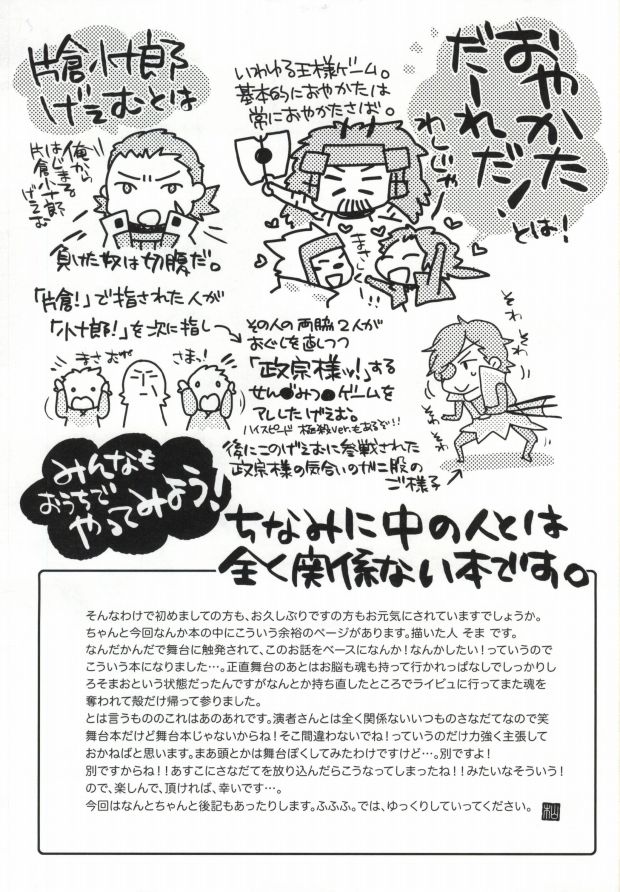 おやかた
だーれだ!
とは!
いわゆる王様ゲーム。
基本的におやかたは
常におやかたさば。
わしじゃー
まさしく!!
片倉小十郎
げえむとは
俺から
はじまる
片倉小十郎
げえむ
負けた奴は切腹だ。
「片倉!」で指された人が
「小十郎!」を次に指し
まさむね
さまっ!
その人の両脇2人が
おぐしを直しつつ
「政宗様ッ!」する
せん●みつ●ゲームを
アレしたげえむ。
ハイスピード 極殺ver.もあるぞ!!
後にこのげえむに参戦された
政宗様の気合いのガニ股の
ご様子
そわ
そわ
そわ
そわ
みんなも
おうちで
やってみよう!
ちなみに中の人とは
全く関係ない本です。
そんなわけで初めましての方も、お久しぶりですの方もお元気にされていますでしょうか。
ちゃんと今回なんか本の中にこういう余裕のページがあります。描いた人 そま です。
なんだかんだで舞台に触発されて、このお話をベースになんか!なんかしたい!っていうので
こういう本になりました…。正直舞台のあとはお脳も魂も持って行かれっぱなしでしっかりし
ろそまおという状態だったんですがなんとか持ち直したところでライビュに行ってまた魂を
奪われて殻だけ帰って参りました。
とは言うもののこれはあのあれです。演者さんとは全く関係ないいつものさなだてなので笑
舞台本だけど舞台本じゃないからね!そこ間違わないでね!っていうのだけ力強く主張して
おかねばと思います。まあ頭とかは舞台ぽくしてみたわけですけど…。別ですよ!
別ですからね!!あすこにさなだてを放り込んだらこうなってしまったね!!みたいなそういう!
ので、楽しんで、頂ければ、幸いです…。
今回はなんとちゃんと後記もあったりします。ふふふ。では、ゆっくりしていってください。